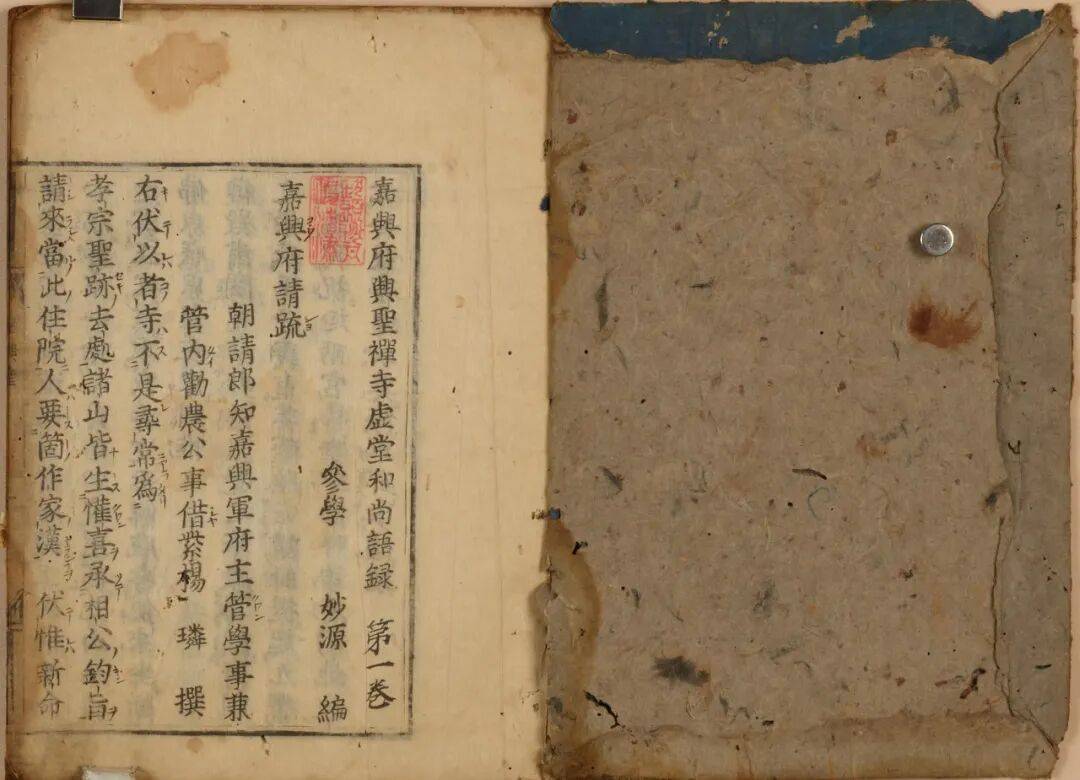 嘉興府興聖禪寺虛堂和尚語録 第一卷
參學 妙源 編
嘉興府請疏
朝請郎知嘉興軍府主管學事兼
管内勸農公事借紫楊 璘 撰
右伏以者寺不是尋常爲
孝宗聖跡去處諸山皆生懽喜承相公鈞旨
請來當此住院人要箇作家漢 伏惟新命